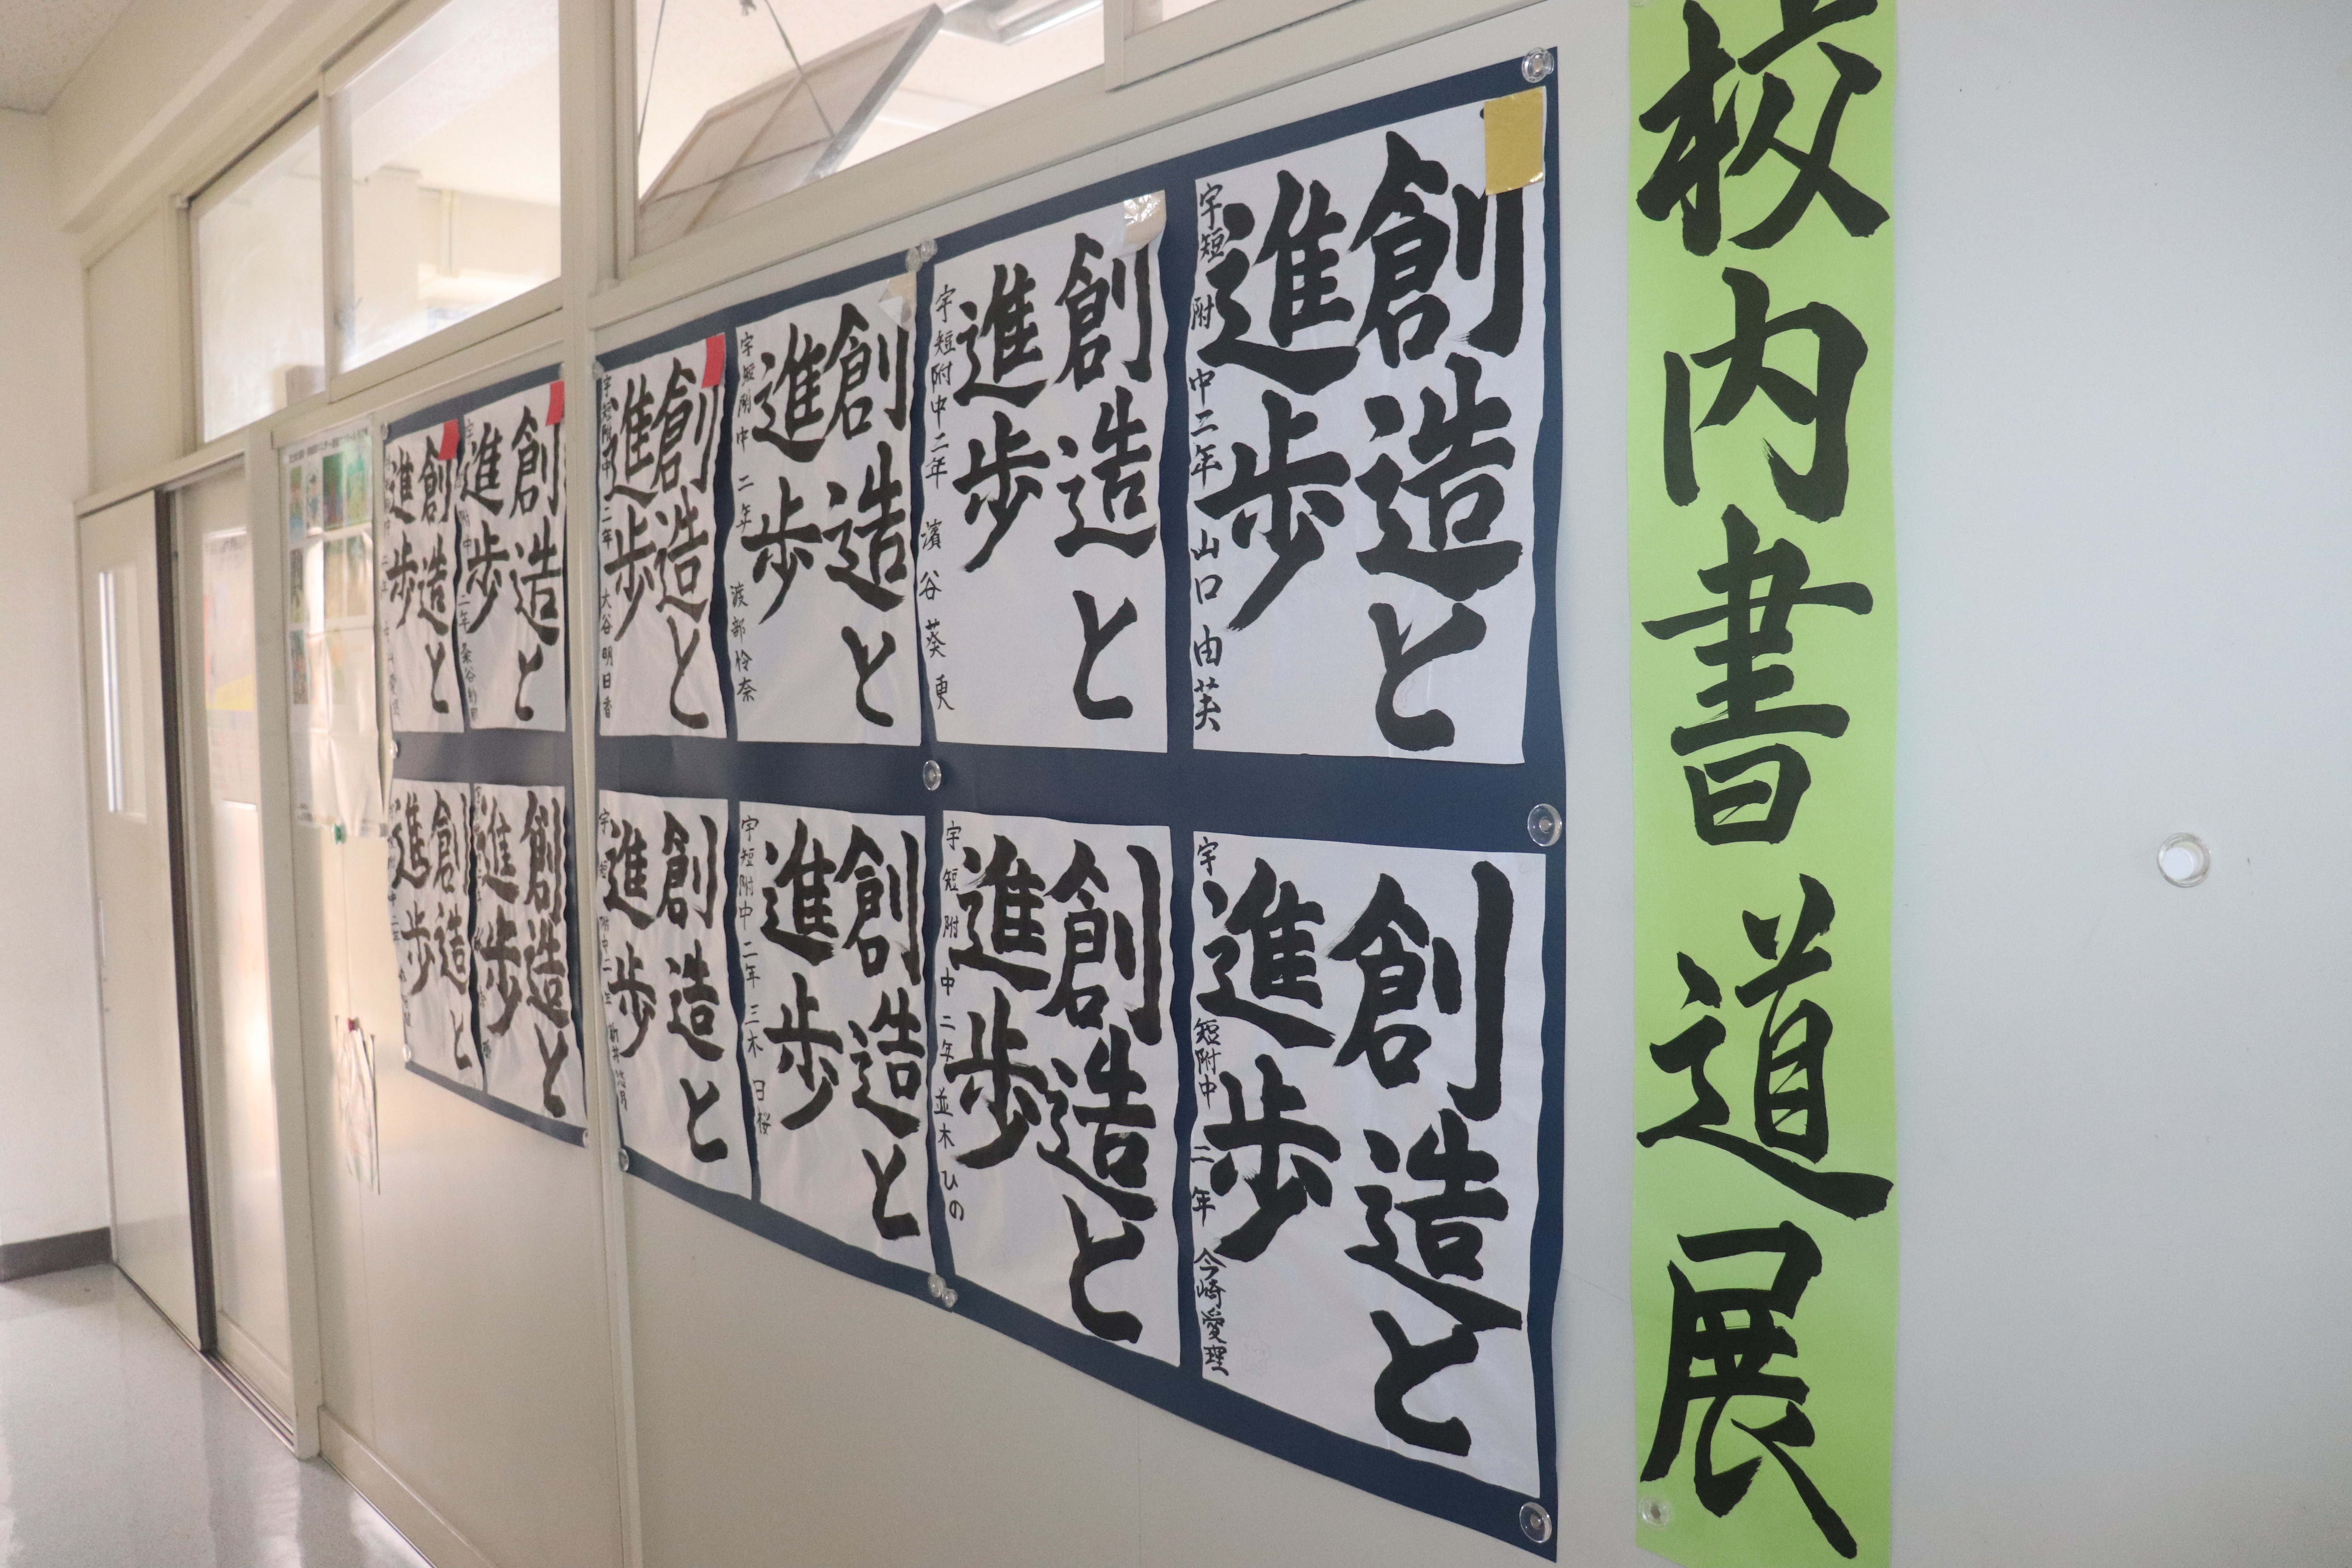 校内書道展
創造と
進歩
宇短附中二年 山口由芙
創造と
進歩
宇短附中二年 濱谷葵更
創造と
進歩
宇短附中 二年 渡部怜奈
創造と
進歩
宇短附中二年 大谷明日香
創造と
進歩
創造と
進歩
創造と
進歩
宇短附中二年 今崎愛理
創造と
進歩
宇短附中二年 並木ひの
創造と
進歩
宇短附中二年 三木日桜
創造と
進歩
宇短附中二年
創造と
進歩
創造と
進歩